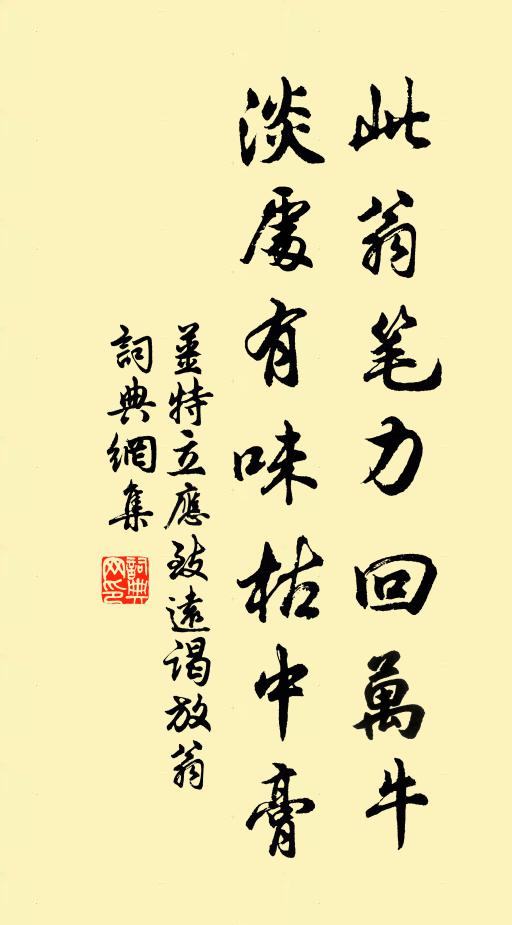 此翁笔力回萬牛
淡處有味枯中膏
姜特立應致遠謁放翁
詞典網集
詞典网印